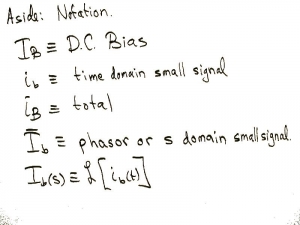 Aside: Notation.
I_B ≡ D.C. Bias
i_b ≡ time domain small signal
i_B ≡ total
Ī_b ≡ phasor or s domain small signal.
I_b(s) ≡ ℒ[i_b(t)]